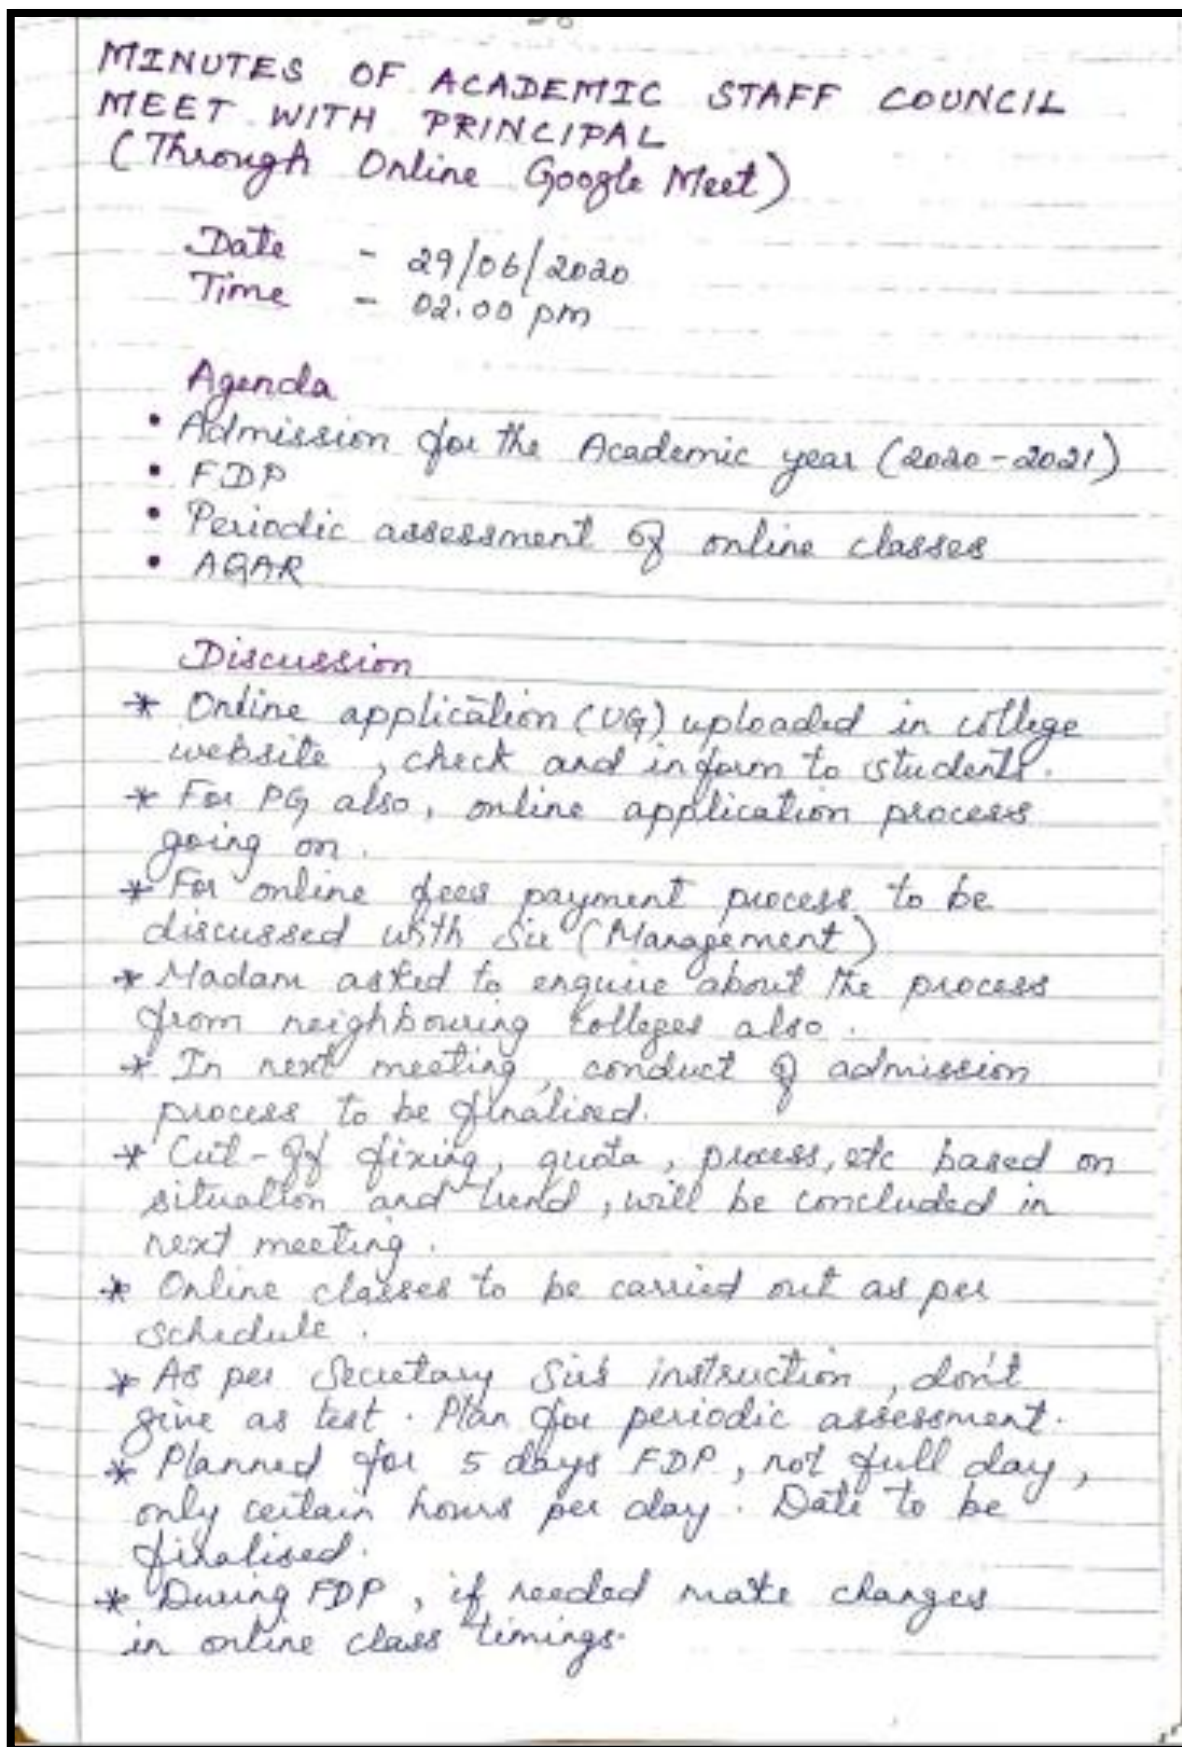 MINUTES OF ACADEMIC STAFF COUNCIL
MEET WITH PRINCIPAL
(Through Online Google Meet)
Date - 29/06/2020
Time - 02.00 pm
Agenda
• Admission for the Academic year (2020-2021)
• FDP
• Periodic assessment of online classes
• AQAR
Discussion
* Online application (UG) uploaded in college
website, check and inform to students.
* For PG also, online application process
going on.
* For online fees payment process to be
discussed with Sir (Management)
* Madam asked to enquire about the process
from neighbouring colleges also.
* In next meeting, conduct of admission
process to be finalised.
* Cut-off fixing, quota, process, etc based on
situation and trend, will be concluded in
next meeting.
* Online classes to be carried out as per
schedule.
* As per Secretary Sir's instruction, don't
give as test. Plan for periodic assessment.
* Planned for 5 days FDP, not full day,
only certain hours per day. Date to be
finalised.
* During FDP, if needed make changes
in online class timings.